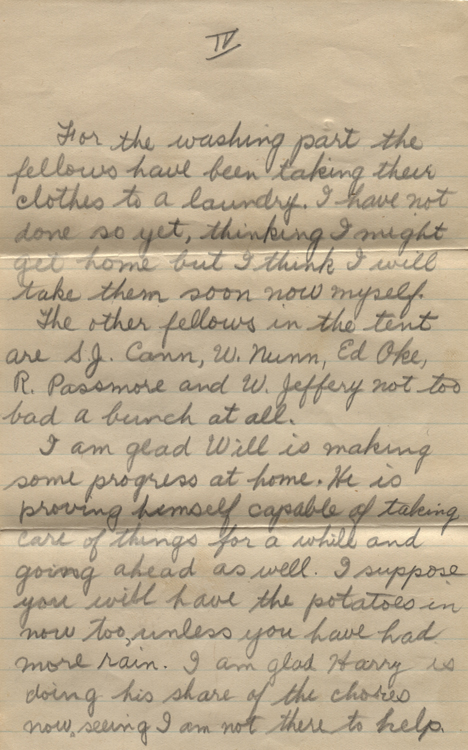 IV
For the washing part the
fellows have been taking their
clothes to a laundry. I have not
done so yet, thinking I might
get home but I think I will
take them soon now myself.
The other fellows in the tent
are S.J. Cann, W. Nunn, Ed Oke,
R. Passmore and W. Jeffery not too
bad a bunch at all.
I am glad Will is making
some progress at home. He is
proving himself capable of taking
care of things for a while and
going ahead as well. I suppose
you will have the potatoes in
now too, unless you have had
more rain. I am glad Harry is
doing his share of the chores
now, seeing I am not there to help.